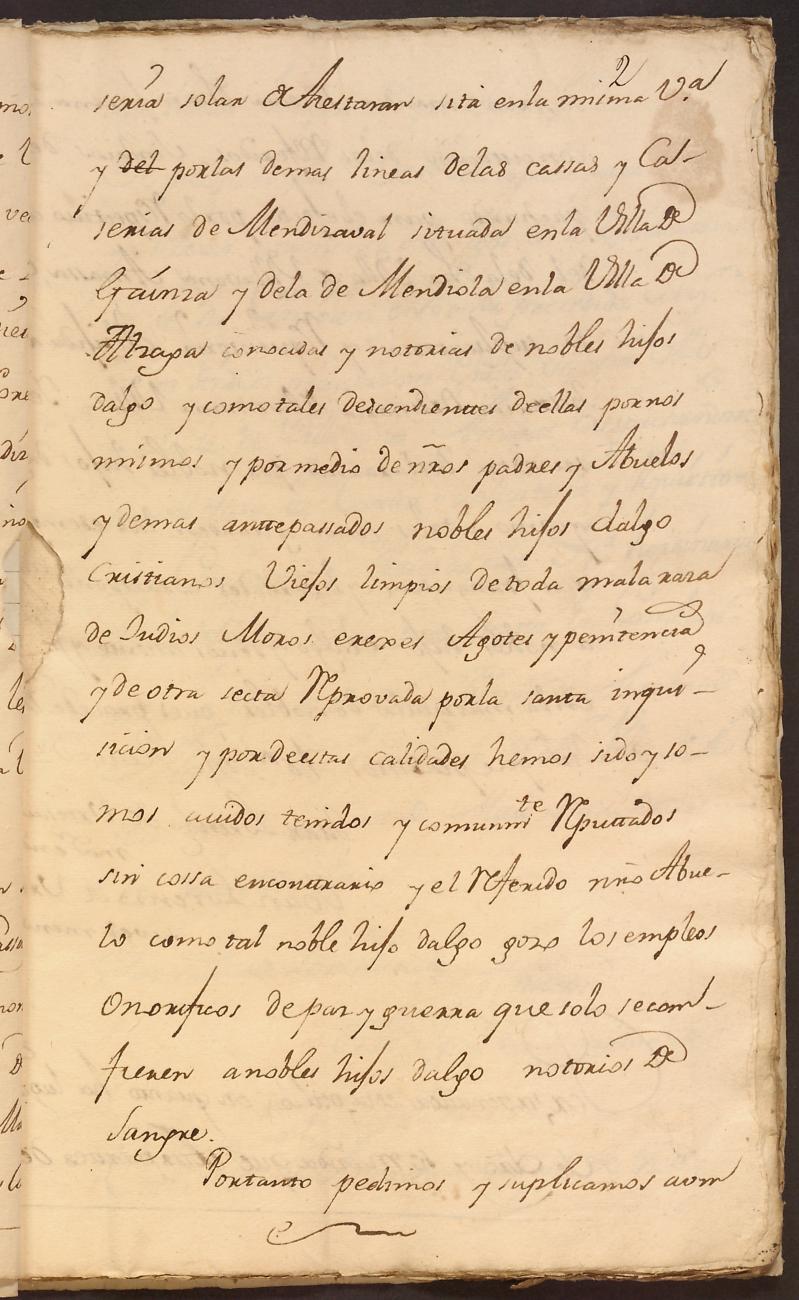 2
seria solar de Arestaran sita en la misma V.a
y del por las demas lineas de las cassas y Cas-
serias de Mendizaval situada en la Villa de
Gaínza y de la de Mendiola en la Villa de
Atzaga conocidas y notorias de nobles hijos
dalgo y como tales descendientes de ellas por nos
mismos y por medio de nr̃os padres y Abuelos
y demas antepassados nobles hijos dalgo
Cristianos Viejos limpios de toda mala raza
de Judios Moros erexes Agotes y penitenciad
os y de otra secta Reprovada por la santa inqui-
sicion y por de estas calidades hemos sido y so-
mos auidos tenidos y comunmte Reputtados
sin cossa en contrario y el Referido nr̃o Abue-
lo como tal noble hijo dalgo gozo los empleos
Onorificos de paz y guerra que solo se con-
fieren a nobles hijos dalgo notorios de
Sangre.
Por tanto pedimos y suplicamos a vm